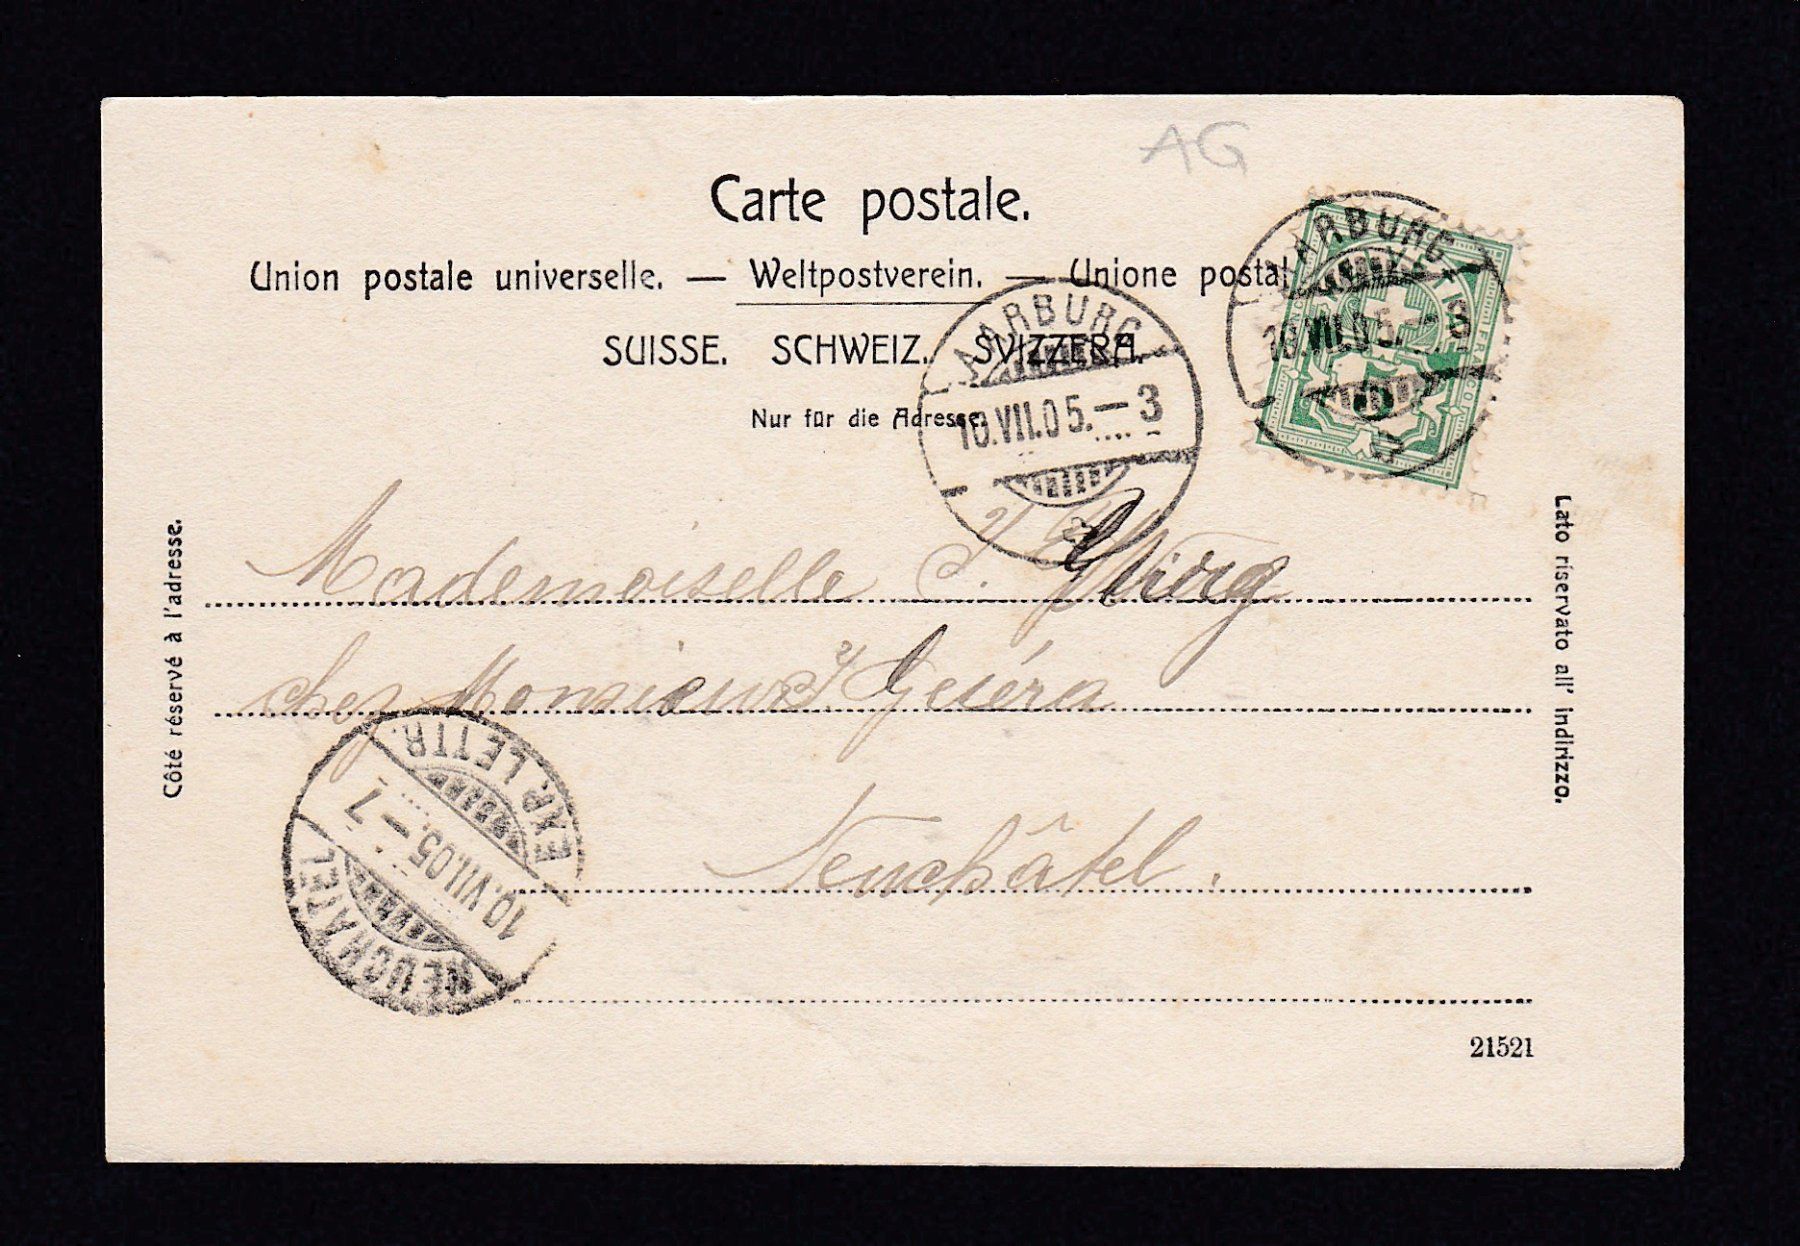 AG
Carte postale.
Union postale universelle. — Weltpostverein. — Unione postal
SUISSE. SCHWEIZ. SVIZZERA.
Nur für die Adresse.
AARBURG
10.VII.05.–3
AARBURG
10.VII.05.–3
FRANCO
5
Côté réservé à l'adresse.
Lato riservato all' indirizzo.
Mademoiselle
chez Monsieur
Neuchâtel.
EXP. LETTR.
10.VII.05.–7
NEUCHATEL
21521